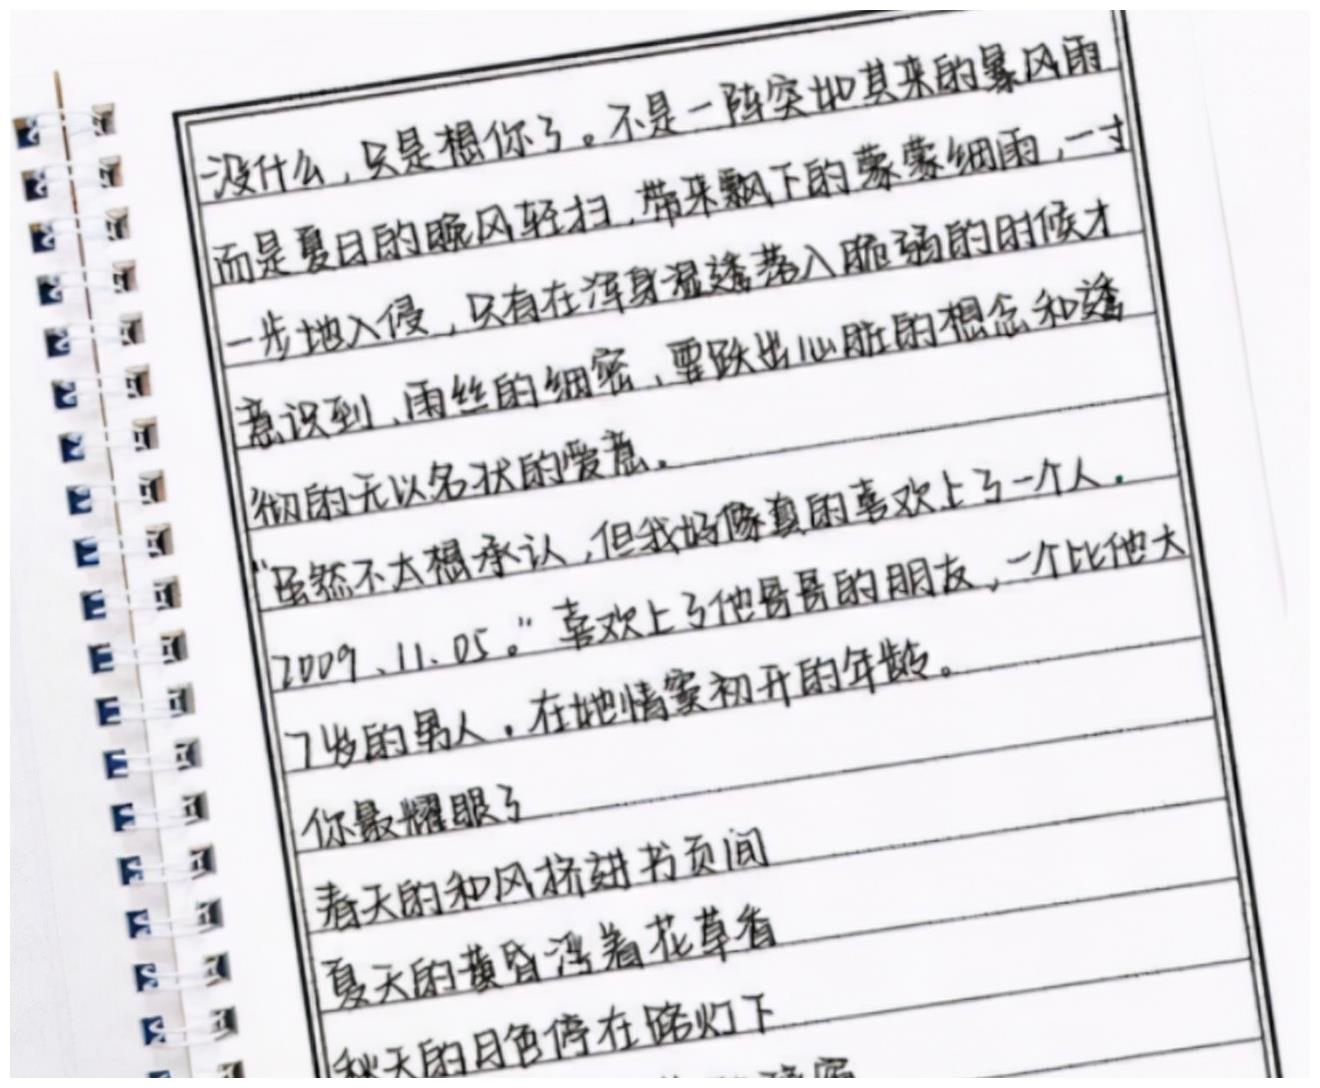 没什么，只是想你了。不是一阵突如其来的暴风雨
而是夏日的晚风轻扫，带来飘下的蒙蒙细雨，一寸
一步地入侵，只有在浑身湿透落入脆弱的时候才
意识到、雨丝的细密、要跃出心脏的想念和透
彻的无以名状的爱意。
“虽然不太想承认，但我好像真的喜欢上了一个人.
2009、11.05。”喜欢上了他哥哥的朋友，一个比他大
7岁的男人。在她情窦初开的年龄。
你最耀眼了
春天的和风挤进书页间
夏天的黄昏湾着花草香
秋天的月色停在路灯下